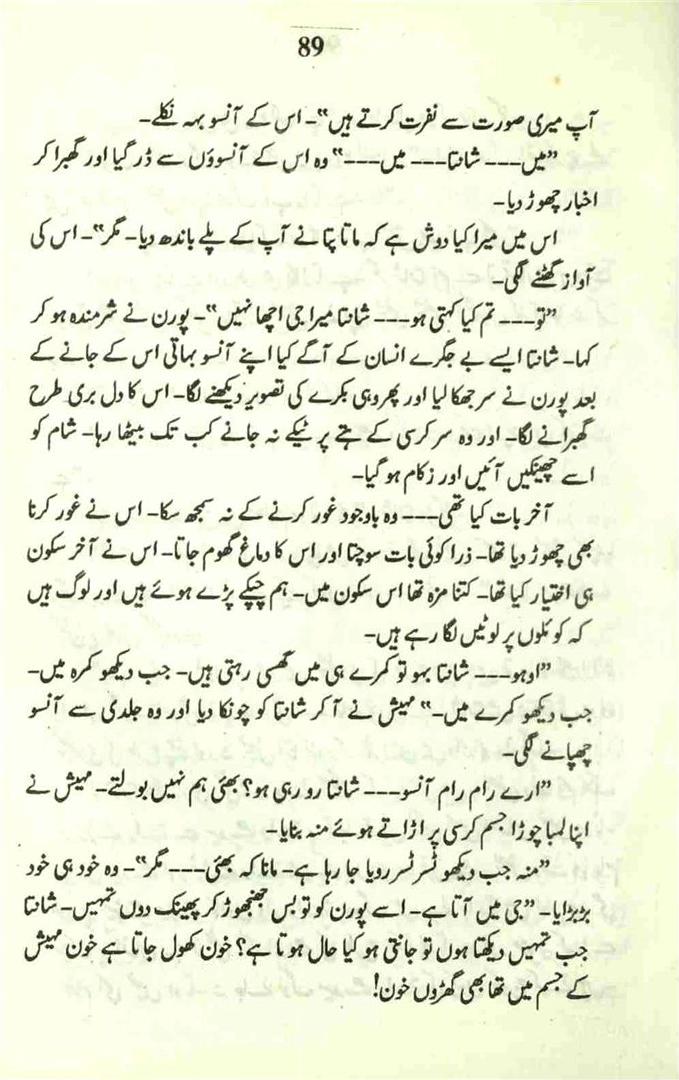 89
آپ میری صورت سے نفرت کرتے ہیں"۔ اس کے آنسو بہہ نکلے۔
"میں--- شانتا--- میں---" وہ اس کے آنسوؤں سے ڈر گیا اور گھبرا کر
اخبار چھوڑ دیا۔
اس میں میرا کیا دوش ہے کہ ماتا پتا نے آپ کے پلے باندھ دیا۔ مگر"۔ اس کی
آواز گھٹنے لگی۔
"تو--- تم کیا کہتی ہو--- شانتا میرا جی اچھا نہیں"۔ پورن نے شرمندہ ہو کر
کہا۔ شانتا ایسے بے جگرے انسان کے آگے کیا اپنے آنسو بہاتی اس کے جانے کے
بعد پورن نے سر جھکا لیا اور پھر وہی بکرے کی تصویر دیکھنے لگا۔ اس کا دل بری طرح
گھبرانے لگا۔ اور وہ سر کرسی کے ہتے پر ٹیکے نہ جانے کب تک بیٹھا رہا۔ شام کو
اسے چھینکیں آئیں اور زکام ہو گیا۔
آخر بات کیا تھی--- وہ باوجود غور کرنے کے نہ سمجھ سکا۔ اس نے غور کرنا
بھی چھوڑ دیا تھا۔ ذرا کوئی بات سوچتا اور اس کا دماغ گھوم جاتا۔ اس نے آخر سکون
ہی اختیار کیا تھا۔ کتنا مزہ تھا اس سکون میں۔ ہم چپکے پڑے ہوئے ہیں اور لوگ ہیں
کہ کوئلوں پر لوٹیں لگا رہے ہیں۔
"اوہو--- شانتا بہو تو کمرے ہی میں گھسی رہتی ہیں۔ جب دیکھو کمرہ میں۔
جب دیکھو کمرے میں۔" مہیش نے آ کر شانتا کو چونکا دیا اور وہ جلدی سے آنسو
چھپانے لگی۔
"ارے رام رام آنسو--- شانتا رو رہی ہو؟ بھئی ہم نہیں بولتے۔ مہیش نے
اپنا لمبا چوڑا جسم کرسی پر اڑاتے ہوئے منہ بنایا۔
"منہ جب دیکھو ٹسر ٹسر رویا جا رہا ہے۔ مانا کہ بھئی--- مگر"۔ وہ خود ہی خود
بڑبڑایا۔ "جی میں آتا ہے۔ اسے پورن کو تو بس جھنجھوڑ کر پھینک دوں تمہیں۔ شانتا
جب تمہیں دیکھتا ہوں تو جانتی ہو کیا حال ہوتا ہے؟ خون کھول جاتا ہے خون مہیش
کے جسم میں تھا بھی گھڑوں خون!